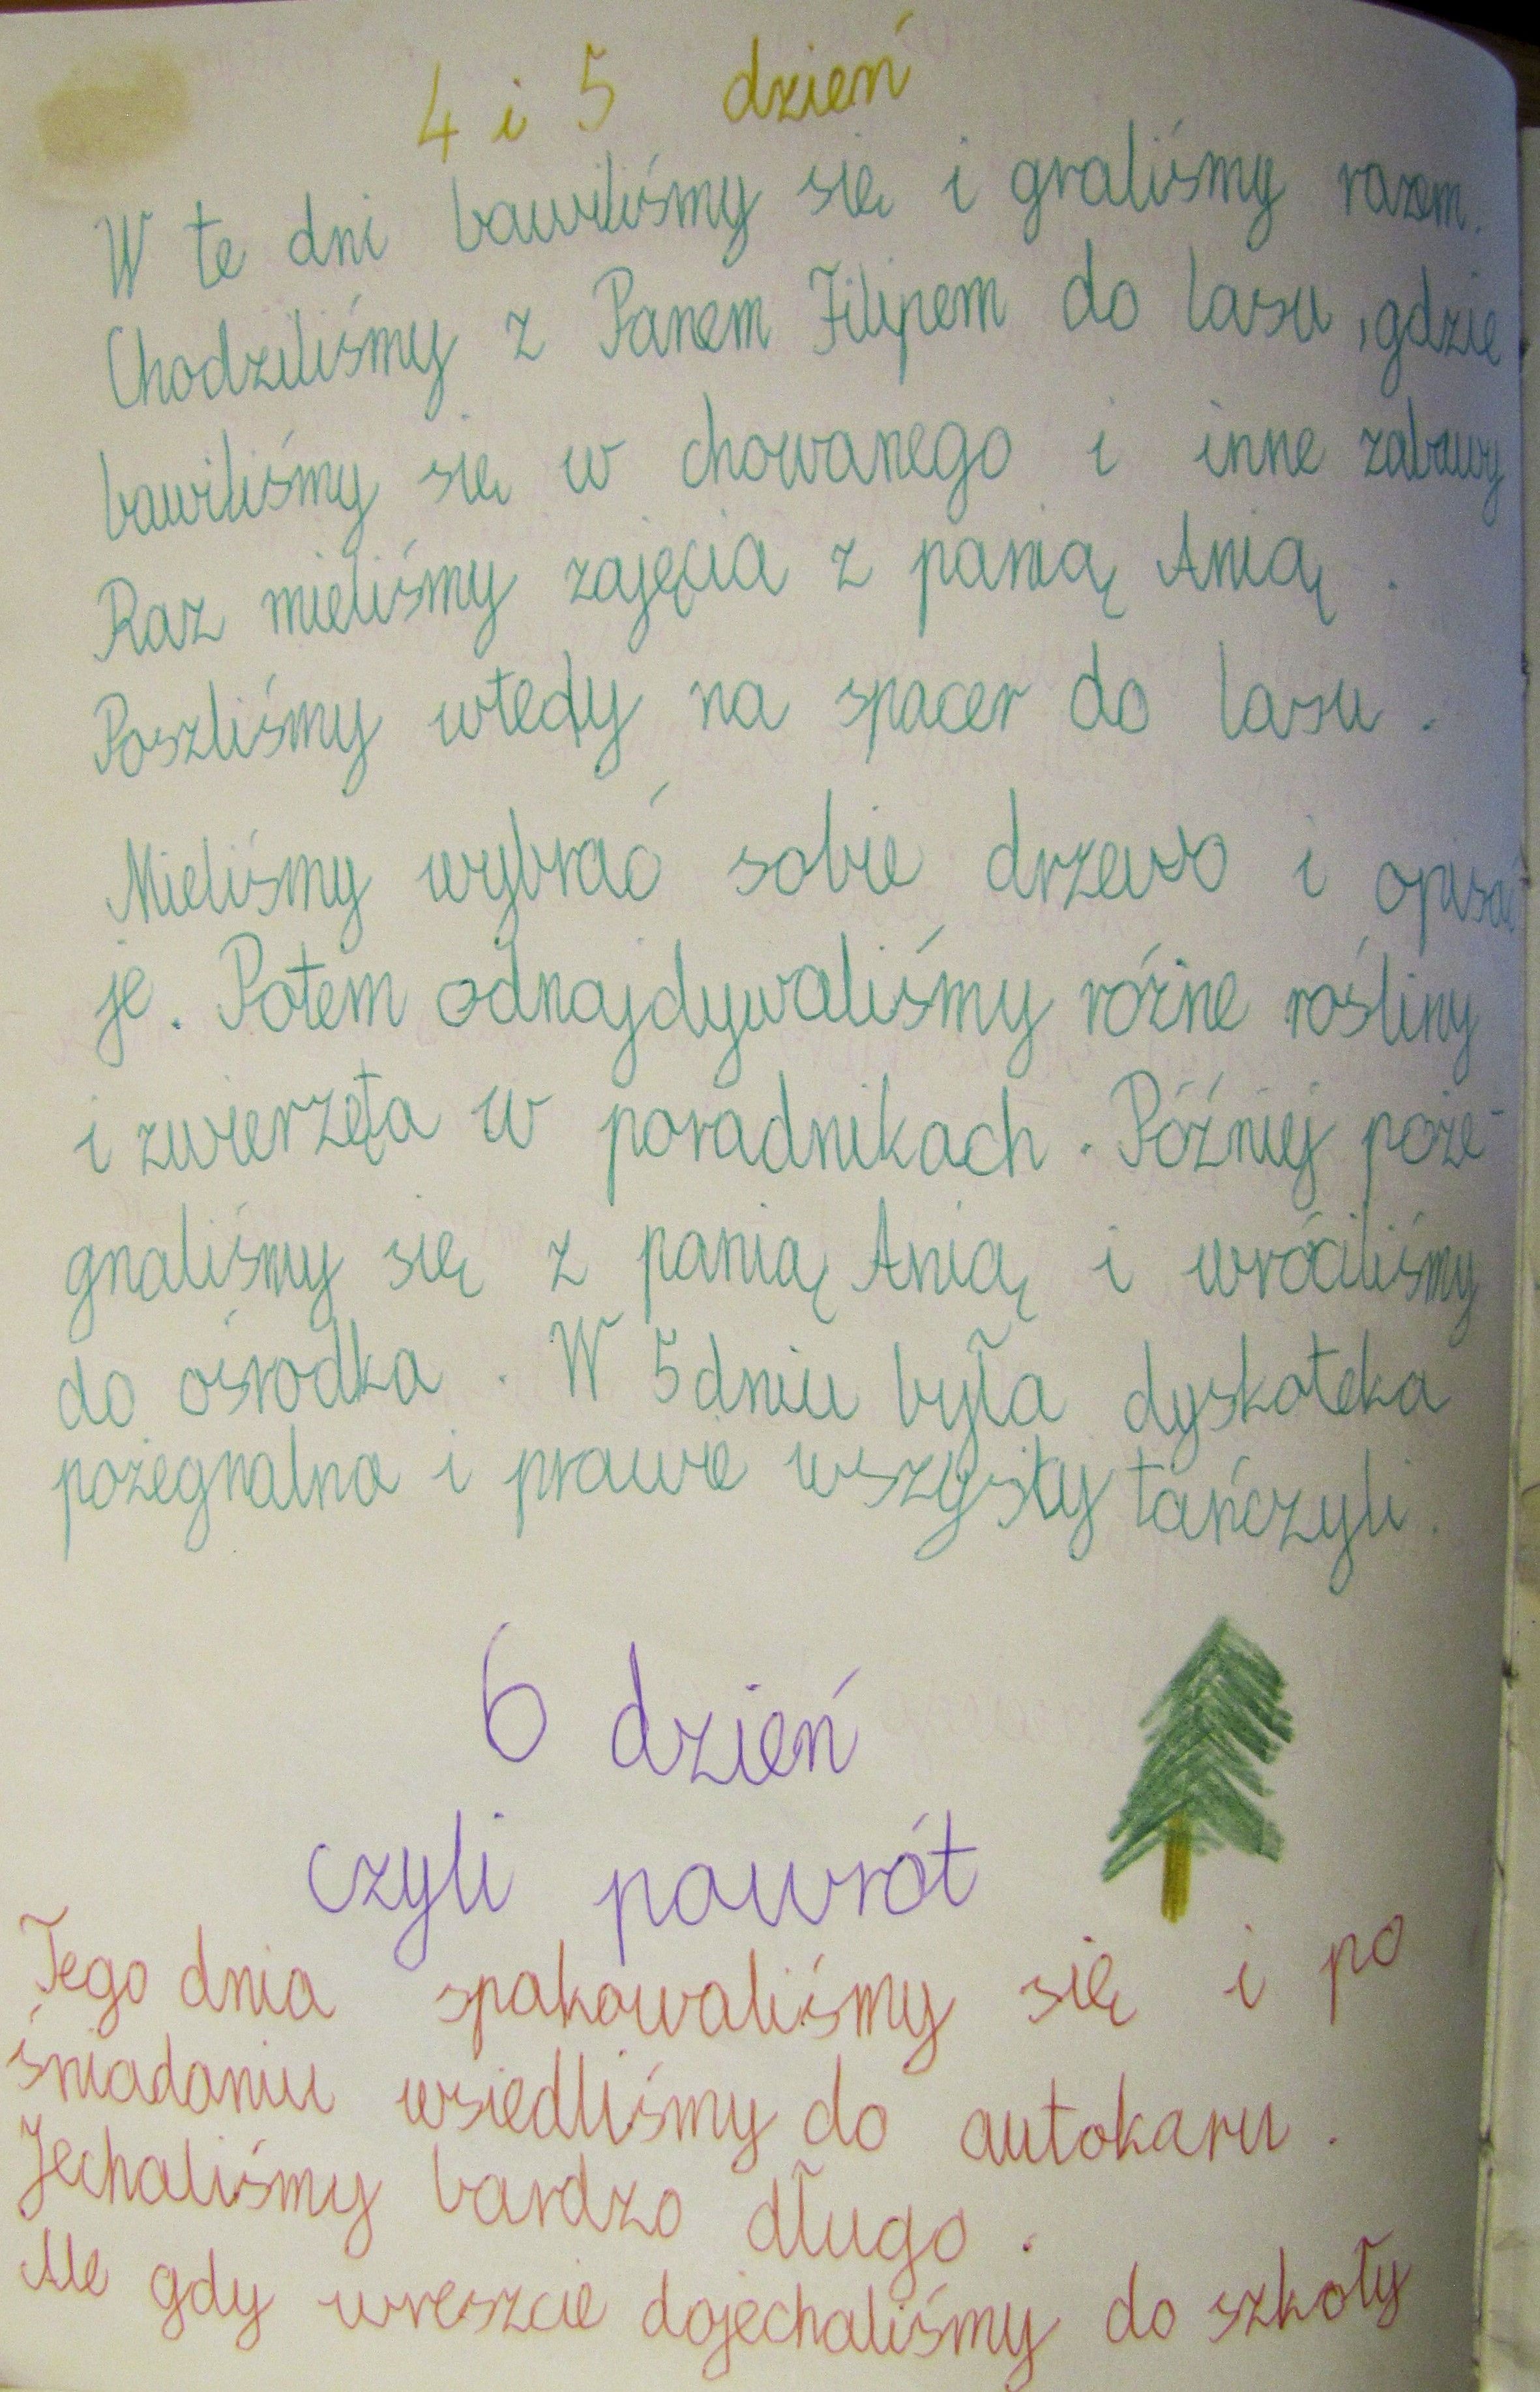 4 i 5 dzień
W te dni bawiliśmy się i graliśmy razem.
Chodziliśmy z Panem Filipem do lasu, gdzie
bawiliśmy się w chowanego i inne zabawy
Raz mieliśmy zajęcia z panią Anią.
Poszliśmy wtedy na spacer do lasu.
Mieliśmy wybrać sobie drzewo i opisać
je. Potem odnajdywaliśmy różne rośliny
i zwierzęta w poradnikach. Później poże-
gnaliśmy się z panią Anią i wróciliśmy
do ośrodka. W 5 dniu była dyskoteka
pożegnalna i prawie wszyscy tańczyli.
6 dzień
czyli powrót
Tego dnia spakowaliśmy się i po
śniadaniu wsiedliśmy do autokaru.
Jechaliśmy bardzo długo.
Ale gdy wreszcie dojechaliśmy do szkoły